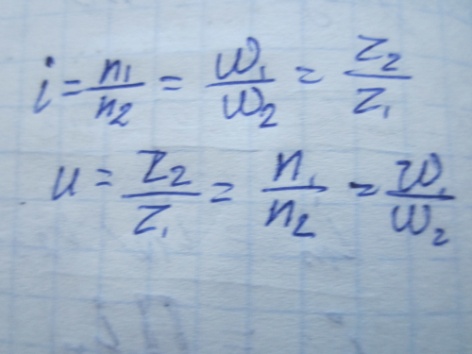 i = n₁/n₂ = ω₁/ω₂ = z₂/z₁
u = z₂/z₁ = n₁/n₂ = ω₁/ω₂